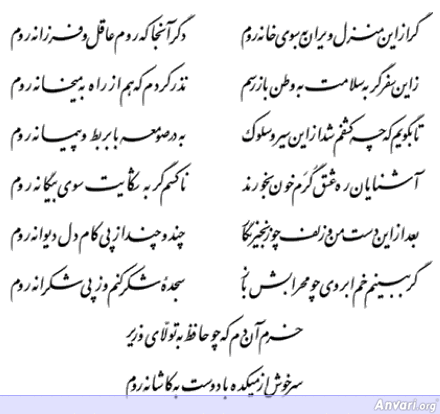 گر از این منزل ویران به سوی خانه روم دگر آنجا که روم عاقل و فرزانه روم
زین سفر گر به سلامت به وطن بازرسم نذر کردم که هم از راه به میخانه روم
تا بگویم که چه کشفم شد از این سیر و سلوک به در صومعه با بربط و پیمانه روم
آشنایان ره عشق گرم خون بخورند ناکسم گر به شکایت سوی بیگانه روم
بعد از این دست من و زلف چو زنجیر نگار چند و چند از پی کام دل دیوانه روم
گر ببینم خم ابروی چو محرابش باز سجدهٔ شکر کنم وز پی شکرانه روم
خرم آن دم که چو حافظ به تولّای وزیر
سرخوش از میکده با دوست به کاشانه روم
Anvari.org